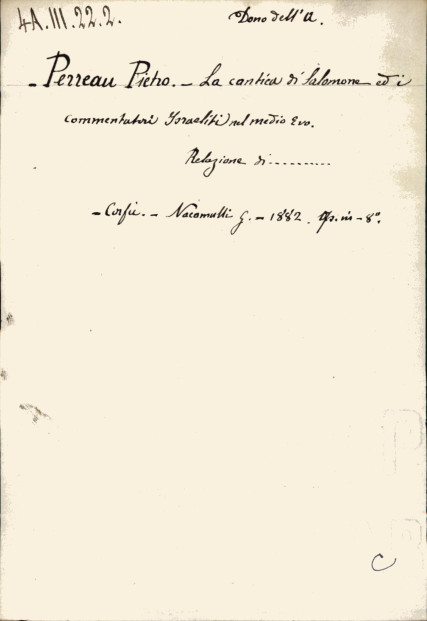 4A.III.22.2.
Dono dell'A.
- Perreau Pietro. - La cantica di Salomone ed i
commentatori Israeliti nel medio Evo.
Relazione di ..........
- Corfù. - Nacamulli G. - 1882. Op. in - 8°.
C